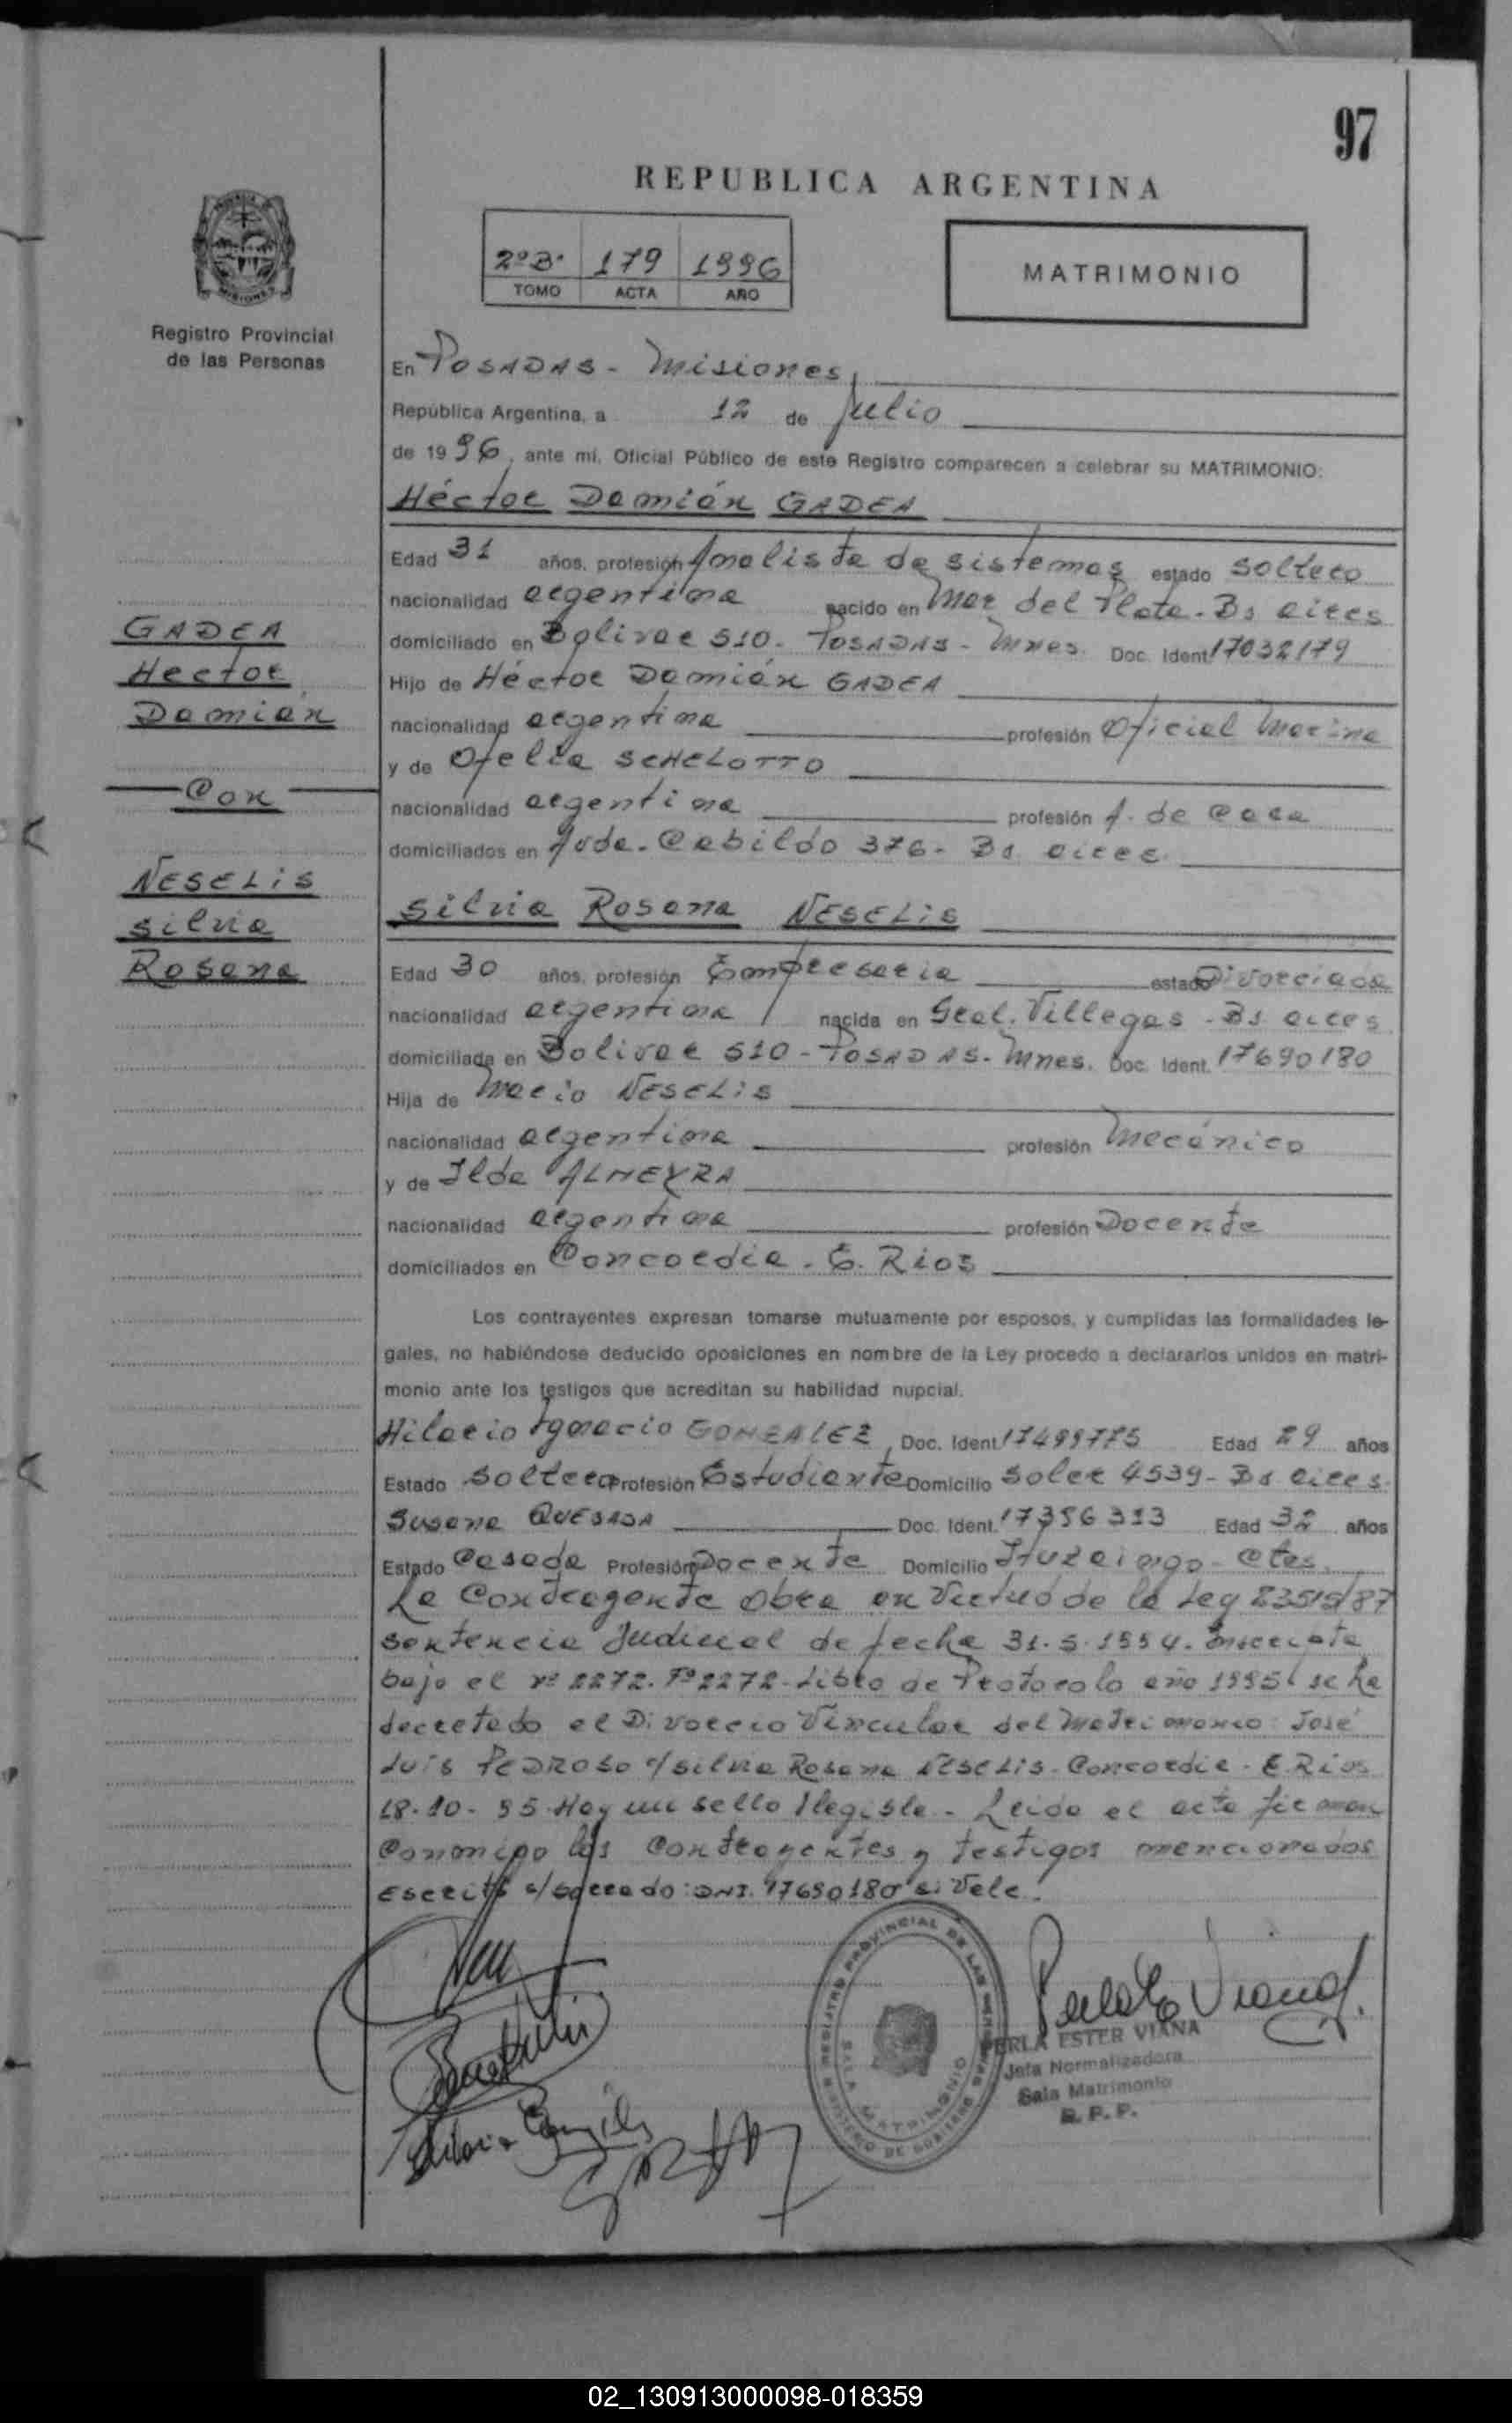 97
REPUBLICA ARGENTINA
2º B. 179 1996
TOMO ACTA AÑO
MATRIMONIO
MISIONES
Registro Provincial
de las Personas
En POSADAS - Misiones,
República Argentina, a 12 de Julio
de 1996, ante mí, Oficial Público de este Registro comparecen a celebrar su MATRIMONIO:
Héctor Damián GADEA
Edad 31 años, profesión Analista de sistemas estado soltero
nacionalidad argentina nacido en Mar del Plata - Bs aires
domiciliado en Bolivar 510 - POSADAS - Mnes. Doc. Ident. 17032179
Hijo de Héctor Damián GADEA
nacionalidad argentina profesión Oficial Marina
y de Ofelia SCHELOTTO
nacionalidad argentina profesión A. de Casa
domiciliados en Avda. Cabildo 376 - Bs aires.
Silvia Rosana NESELIS
Edad 30 años, profesión Empresaria estado Divorciada
nacionalidad argentina nacida en Gral. Villegas - Bs aires
domiciliada en Bolivar 510 - POSADAS - Mnes. Doc. Ident. 17690180
Hija de Mario NESELIS
nacionalidad argentina profesión Mecánico
y de Ilda ALMEYRA
nacionalidad argentina profesión Docente
domiciliados en Concordia - E. Rios
GADEA
Hector
Damián
Con
NESELIS
Silvia
Rosana
Los contrayentes expresan tomarse mutuamente por esposos, y cumplidas las formalidades le-
gales, no habiéndose deducido oposiciones en nombre de la Ley procedo a declararlos unidos en matri-
monio ante los testigos que acreditan su habilidad nupcial.
Hilario Ignacio GONZALEZ, Doc. Ident. 17499775 Edad 29 años
Estado Soltero Profesión Estudiante Domicilio Soler 4539 - Bs aires.
Susana QUESADA Doc. Ident. Edad 32 años
Estado Casada Profesión Docente Domicilio Ituzaingo - Ctes.
La Contragente obra en Virtud de la Ley 23515/87
sentencia Judicial de fecha 31.5.1994. Inscripta
bajo el nº 2272. Fº 2272 - Libro de Protocolo año 1995 se ha
decretado el Divorcio Vincular del Matrimonio: José
Luis PEDROSO c/ Silvia Rosana NESELIS - Concordia - E. Rios
18-10-95. Hay un sello Ilegible - Leida el acta firman
Conmigo los Contrayentes y testigos mencionados
Escrito s/ borrado: DNI. 17690180 si Vale.
REGISTRO PROVINCIAL DE LAS PERSONAS
MINISTERIO DE GOBIERNO
SALA MATRIMONIO
PERLA ESTER VIANA
Jefa Normalizadora
Sala Matrimonio
R. P. P.
02_130913000098-018359